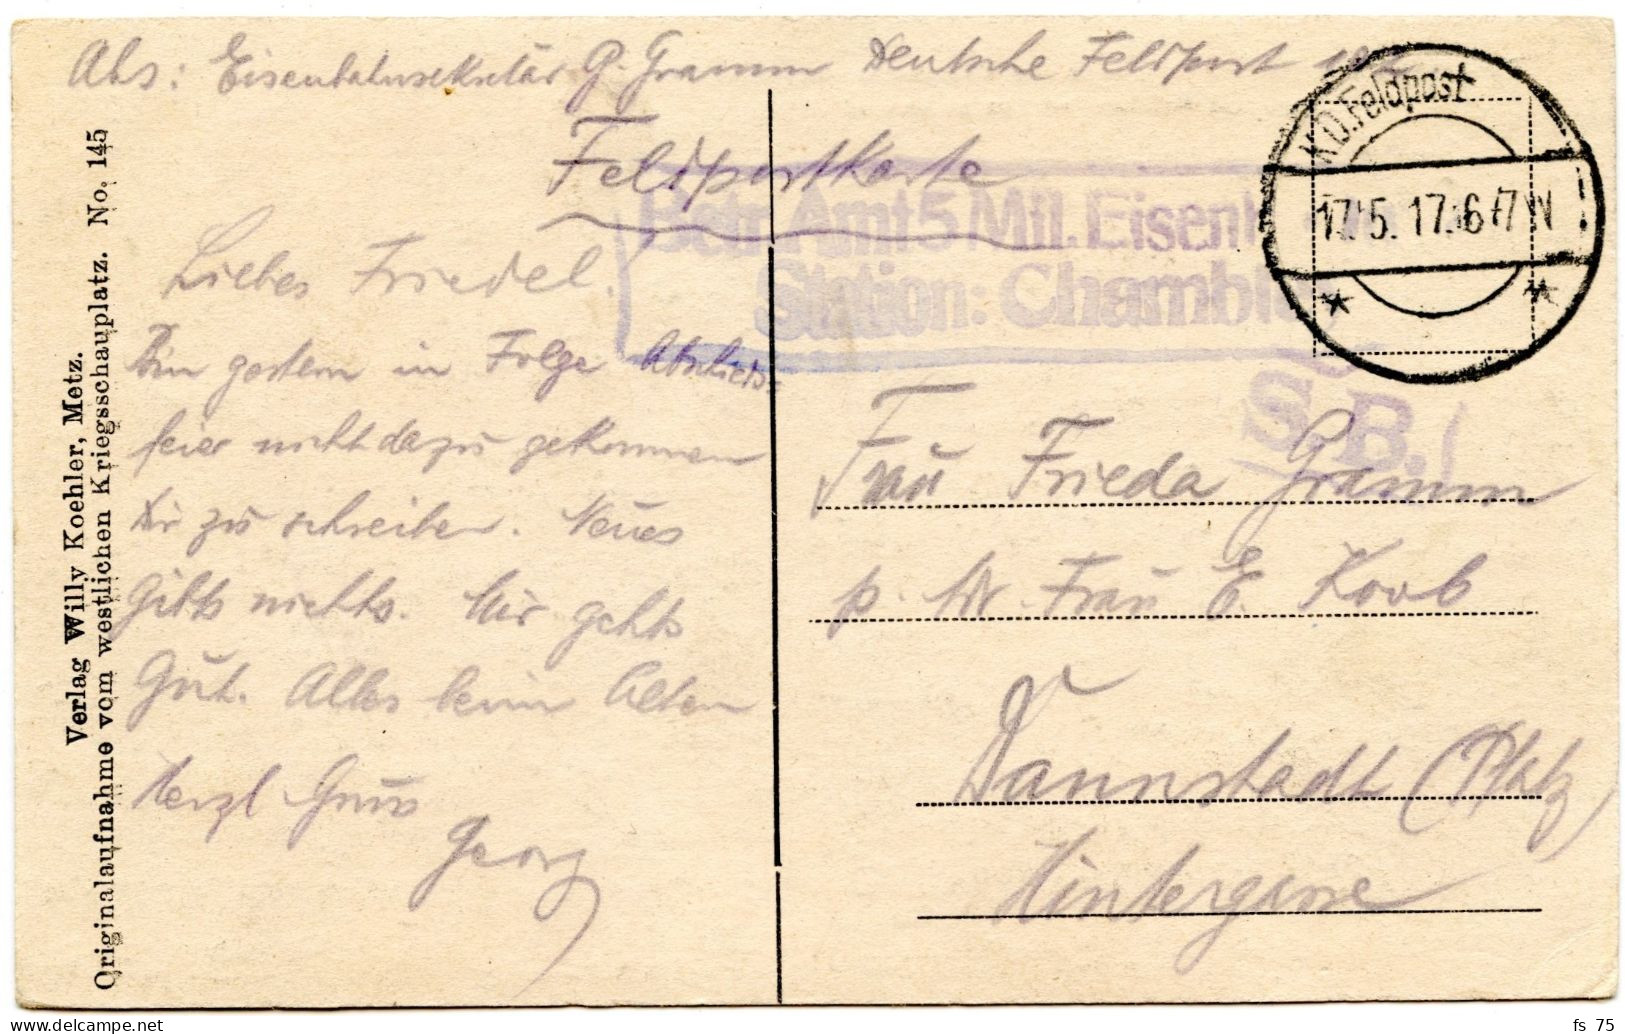 Abs: Eisenbahnsekretär G. Gramm Deutsche Feldpost
Feldpostkarte
K.D. Feldpost
17.5.17. 6-7 N
Betr. Amt 5 Mil. Eisenb
Station: Chambley
S.B.
Verlag Willy Koehler, Metz.
Originalaufnahme vom westlichen Kriegsschauplatz. No. 145
Liebes Friedel.
Bin gestern in Folge Abschieds-
feier nicht dazu gekommen
Dir zu schreiben. Neues
gibts nichts. Mir gehts
Gut. Alles beim Alten
Herzl Gruss
Georg
Frau Frieda Gramm
p. Adr. Frau E. Koob
Dannstadt (Pfalz)
Hintergasse
fs 75